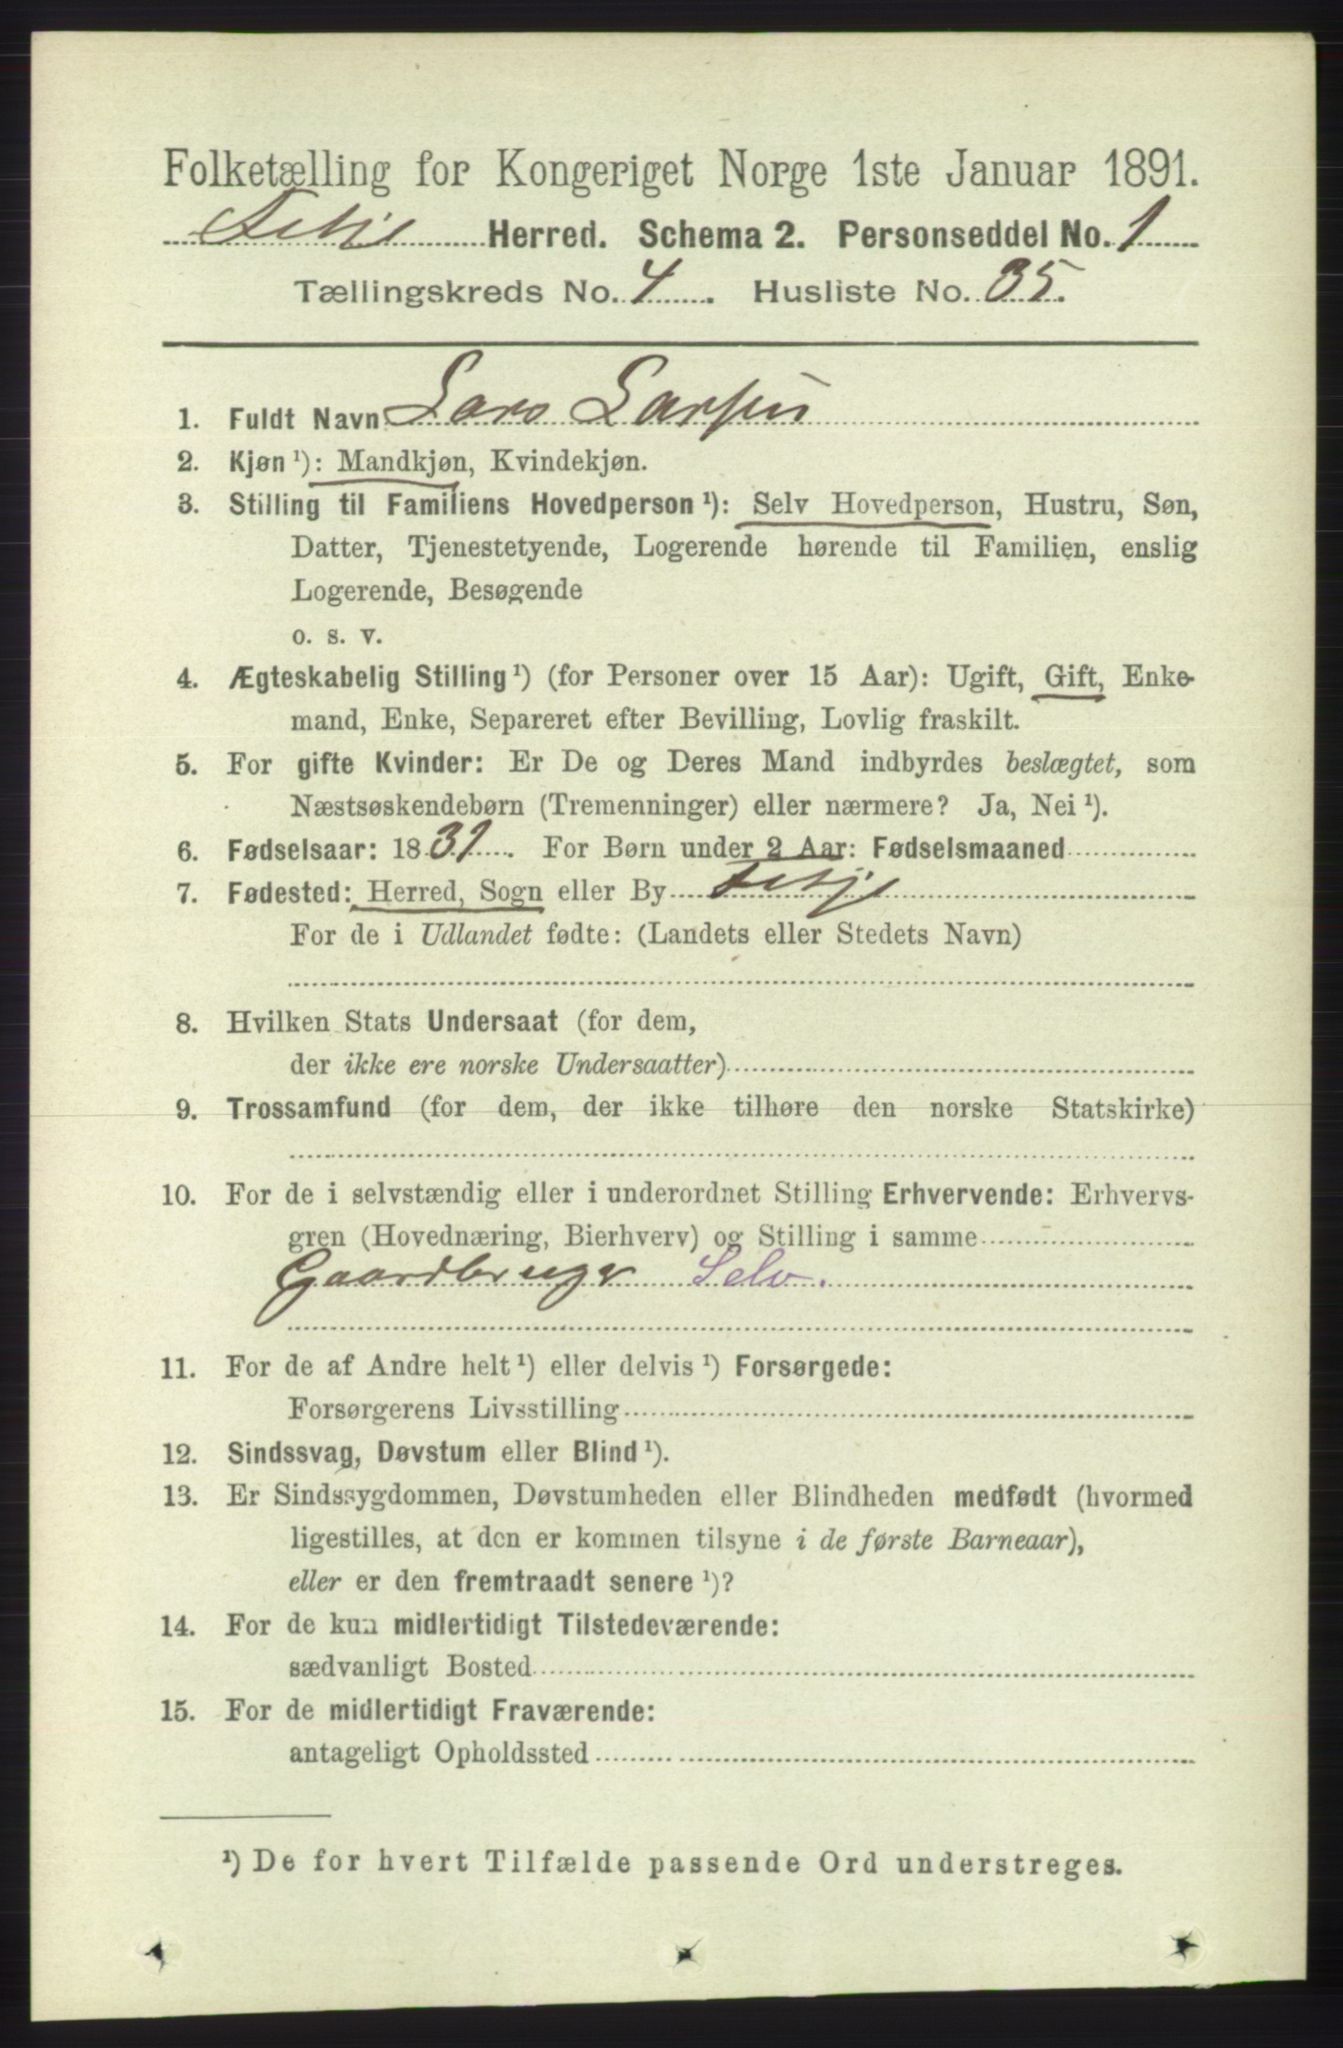 Folketælling for Kongeriget Norge 1ste Januar 1891.
Fetje Herred. Schema 2. Personseddel No. 1
Tællingskreds No. 4. Husliste No. 35.
1. Fuldt Navn Lars Larsen
2. Kjøn ¹): Mandkjøn, Kvindekjøn.
3. Stilling til Familiens Hovedperson ¹): Selv Hovedperson, Hustru, Søn,
Datter, Tjenestetyende, Logerende hørende til Familien, enslig
Logerende, Besøgende
o. s. v.
4. Ægteskabelig Stilling ¹) (for Personer over 15 Aar): Ugift, Gift, Enke-
mand, Enke, Separeret efter Bevilling, Lovlig fraskilt.
5. For gifte Kvinder: Er De og Deres Mand indbyrdes beslægtet, som
Næstsøskendebørn (Tremenninger) eller nærmere? Ja, Nei ¹).
6. Fødselsaar: 1831. For Børn under 2 Aar: Fødselsmaaned
7. Fødested: Herred, Sogn eller By Fetje
For de i Udlandet fødte: (Landets eller Stedets Navn)
8. Hvilken Stats Undersaat (for dem,
der ikke ere norske Undersaatter)
9. Trossamfund (for dem, der ikke tilhøre den norske Statskirke)
10. For de i selvstændig eller i underordnet Stilling Erhvervende: Erhvervs-
gren (Hovednæring, Bierhverv) og Stilling i samme
Gaardbruger Selv.
11. For de af Andre helt ¹) eller delvis ¹) Forsørgede:
Forsørgerens Livsstilling
12. Sindssvag, Døvstum eller Blind ¹).
13. Er Sindssygdommen, Døvstumheden eller Blindheden medfødt (hvormed
ligestilles, at den er kommen tilsyne i de første Barneaar),
eller er den fremtraadt senere ¹)?
14. For de kun midlertidigt Tilstedeværende:
sædvanligt Bosted
15. For de midlertidigt Fraværende:
antageligt Opholdssted
¹) De for hvert Tilfælde passende Ord understreges.